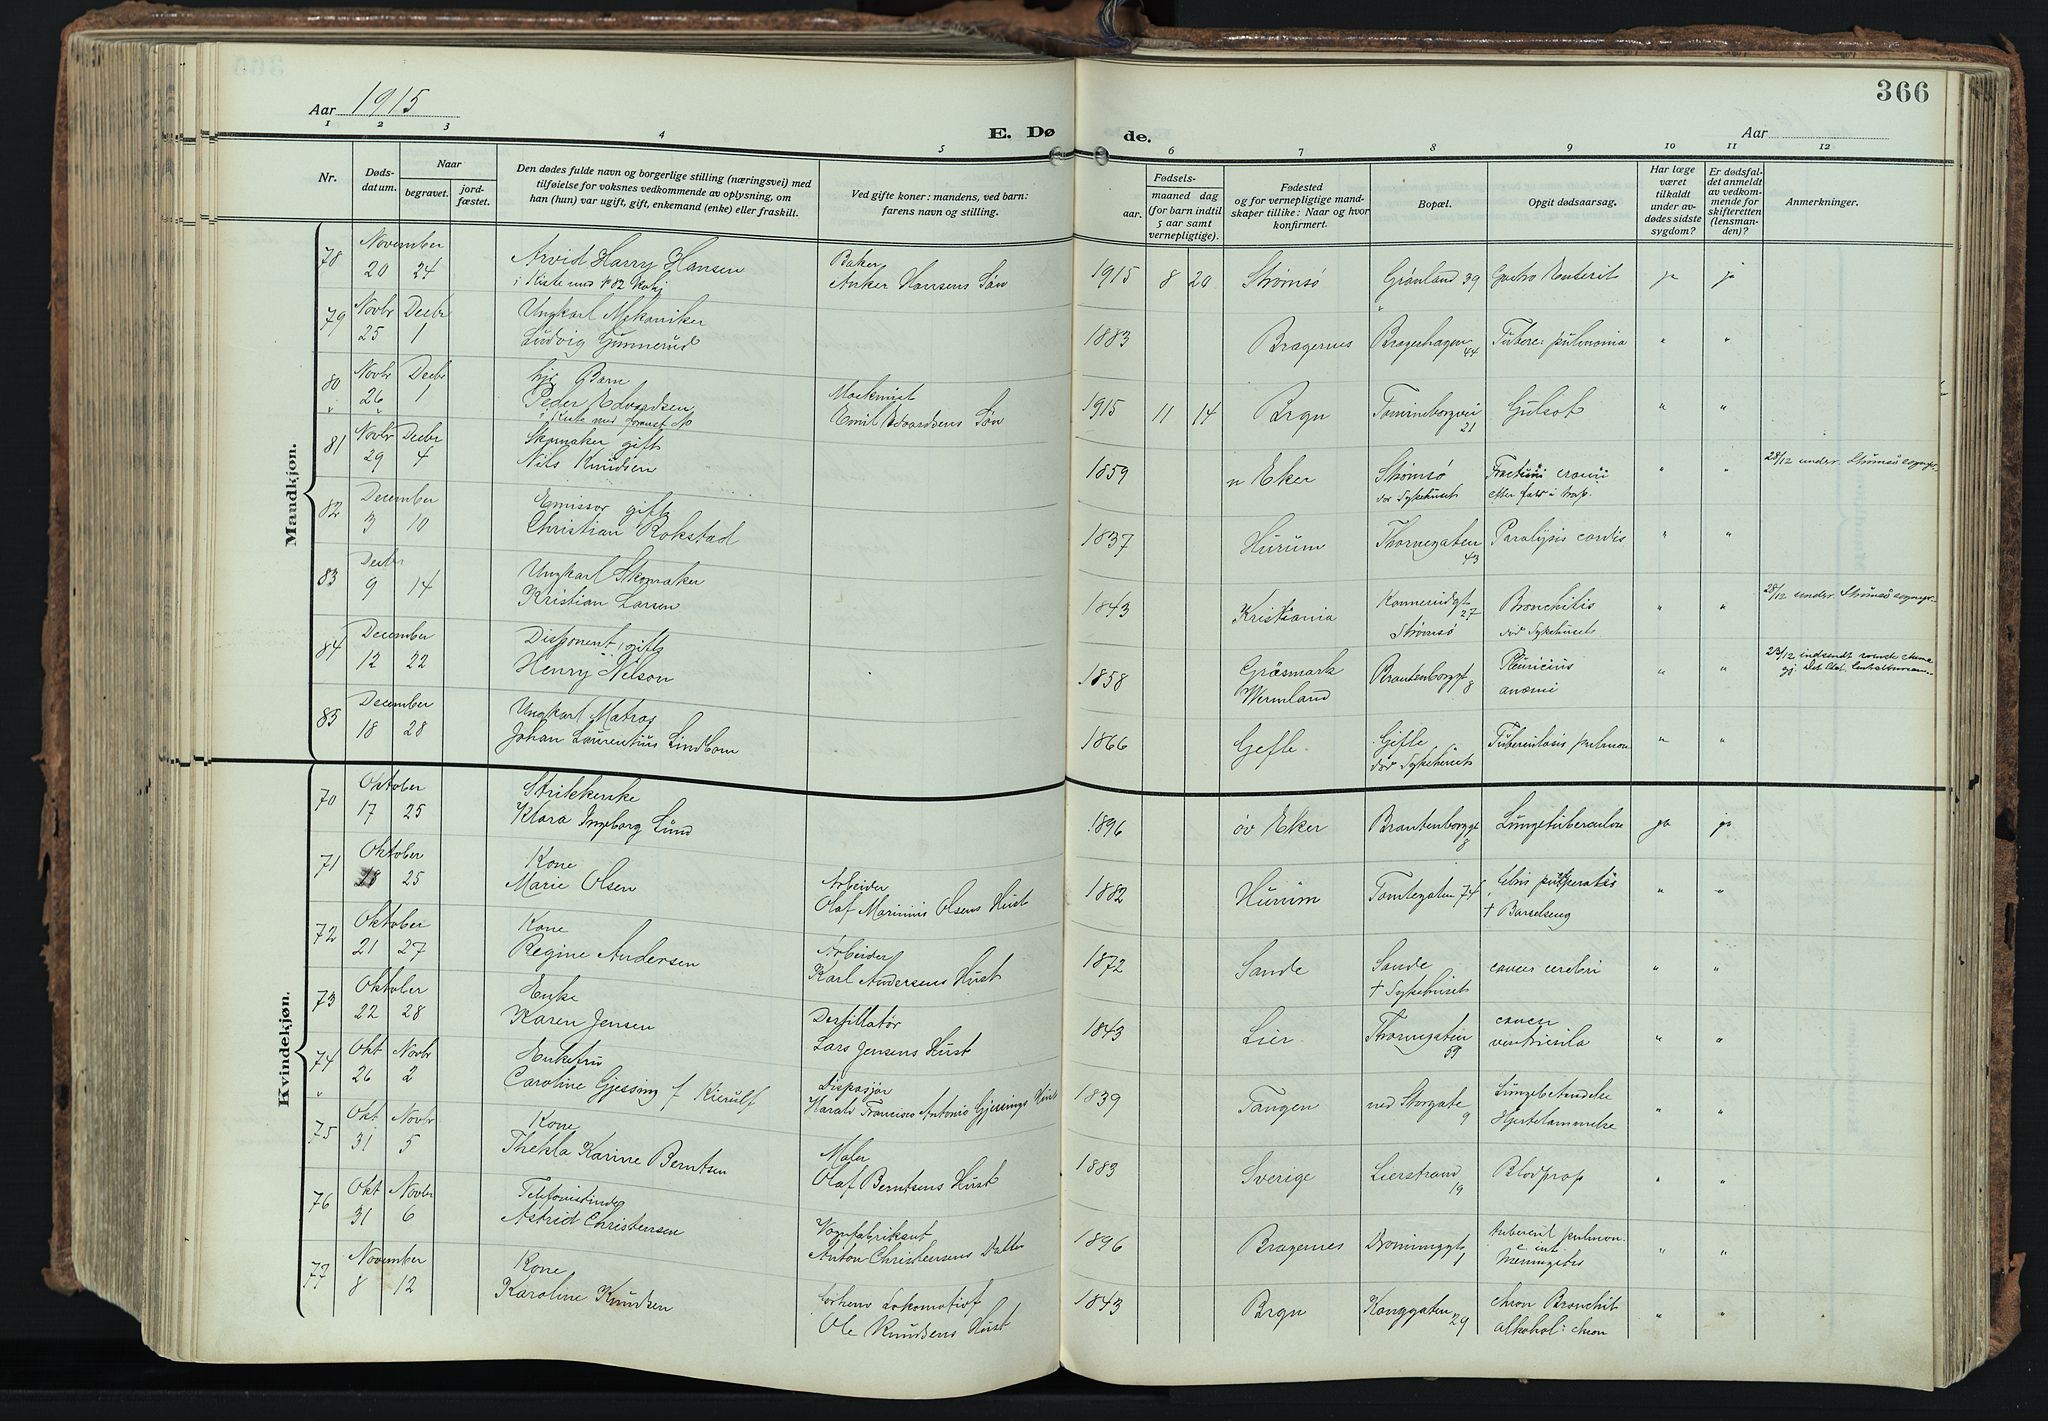 366
Aar 1915
E. Dø de.
Aar
1 2 3 4 5 6 7 8 9 10 11 12
Nr.
Døds-
datum.
Naar
begravet.
jord-
fæstet.
Den dødes fulde navn og borgerlige stilling (næringsvei) med
tilføielse for voksnes vedkommende av oplysning, om
han (hun) var ugift, gift, enkemand (enke) eller fraskilt.
Ved gifte koner: mandens, ved barn:
farens navn og stilling.
Fødsels-
aar.
maaned dag
(for barn indtil
5 aar samt
vernepligtige).
Fødested
og for vernepligtige mand-
skaper tillike: Naar og hvor
konfirmert.
Bopæl.
Opgit dødsaarsag.
Har læge
været
tilkaldt
under av-
dødes sidste
sygdom?
Er dødsfal-
det anmeldt
av vedkom-
mende for
skifteretten
(lensman-
den)?
Anmerkninger.
Mandkjøn.
78 November Arvid Harry Hansen Baker 1915 8 20 Strømsø Grønland 39 Gastro Enterit ja ja
20 24 i Kiste med Anker Hansens Søn
79 Novbr Decbr Ungkarl Mekaniker 1883 Bragernes Bragerhagen Tuberc: pulmonia " "
25 1 Ludvig Gunnerud 44
80 Novbr Decbr Barn Maskinist
26 1 Peder Edvardsen Emil Edvardsens Søn 1915 11 14 Brgn Tomineborgvei Gulsot " "
i Kiste med 21
81 Novbr Decbr Skomaker gift 1859 n Eker Strømsø cranii " " 28/12 underr. Strømsø sognepr.
29 4 Nils Knudsen dør Sykehuset efter fald i trap.
82 December Emissær gift 1837 Hurum Thornegaten Paralysis cordis " "
3 10 Christian Rokstad 43
83 Decbr Ungkarl Skomaker 1843 Kristiania Konnerudgt 27 Bronchitis " " 28/12 underr. Strømsø sognepr.
9 14 Kristian Larsen Strømsø dør Sykehuset
84 December Disponent, gift 1858 Gräsmark Brantenborggt " " 23/12 indsendt svensk
12 22 Henry Nilson Wermland 8 anæmi
85 December Ungkarl Matros 1866 Gefle Gefle Tuberculosis pulmon " "
18 28 Johan Laurentius Lindbom dør Sykehuset
Kvindekjøn.
70 Oktober Strikkerske 1896 øv Eker Brantenborggt Lungetuberculose ja ja
17 25 Klara Ingeborg Lund 8
71 Oktober Kone Arbeider 1882 Hurum Tomtegaten 74 febris puerperalis " "
18 25 Marie Olsen Olaf Marinius Olsens Hust † Barselseng
72 Oktober Kone Arbeider 1872 Sande Sande cancer cerebri " "
21 27 Regine Andersen Karl Andersens Hust † Sykehuset
73 Oktober Enke Destillatør 1843 Lier Thornegaten cancer " "
22 28 Karen Jensen Lars Jensens Hust 59 ventricula
74 Okt Novbr Enkefru Dispasjør 1839 Tangen ned Storgate Lungebetændelse " "
26 2 Caroline Gjessing f Kierulf Harald Francisco Antonio Gjessings Hust 9 Hjertelammelse
75 Okt Novbr Kone Maler 1883 Sverige Lierstrand Blodprop " "
31 5 Thekla Karine Berntsen Olaf Berntsens Hust 19
76 Okt Novbr Telefonistinde Vognfabrikant 1896 Bragernes Dronninggt tubercul pulmon. " "
31 6 Astrid Christensen Anton Christensens Datter 1 et int. Meningitis
77 November Kone forhenv Lokomotivf 1843 Brgn Konggaten chron Bronchit " "
8 12 Karoline Knudsen Ole Knudsens Hust 29 alkohol: chron